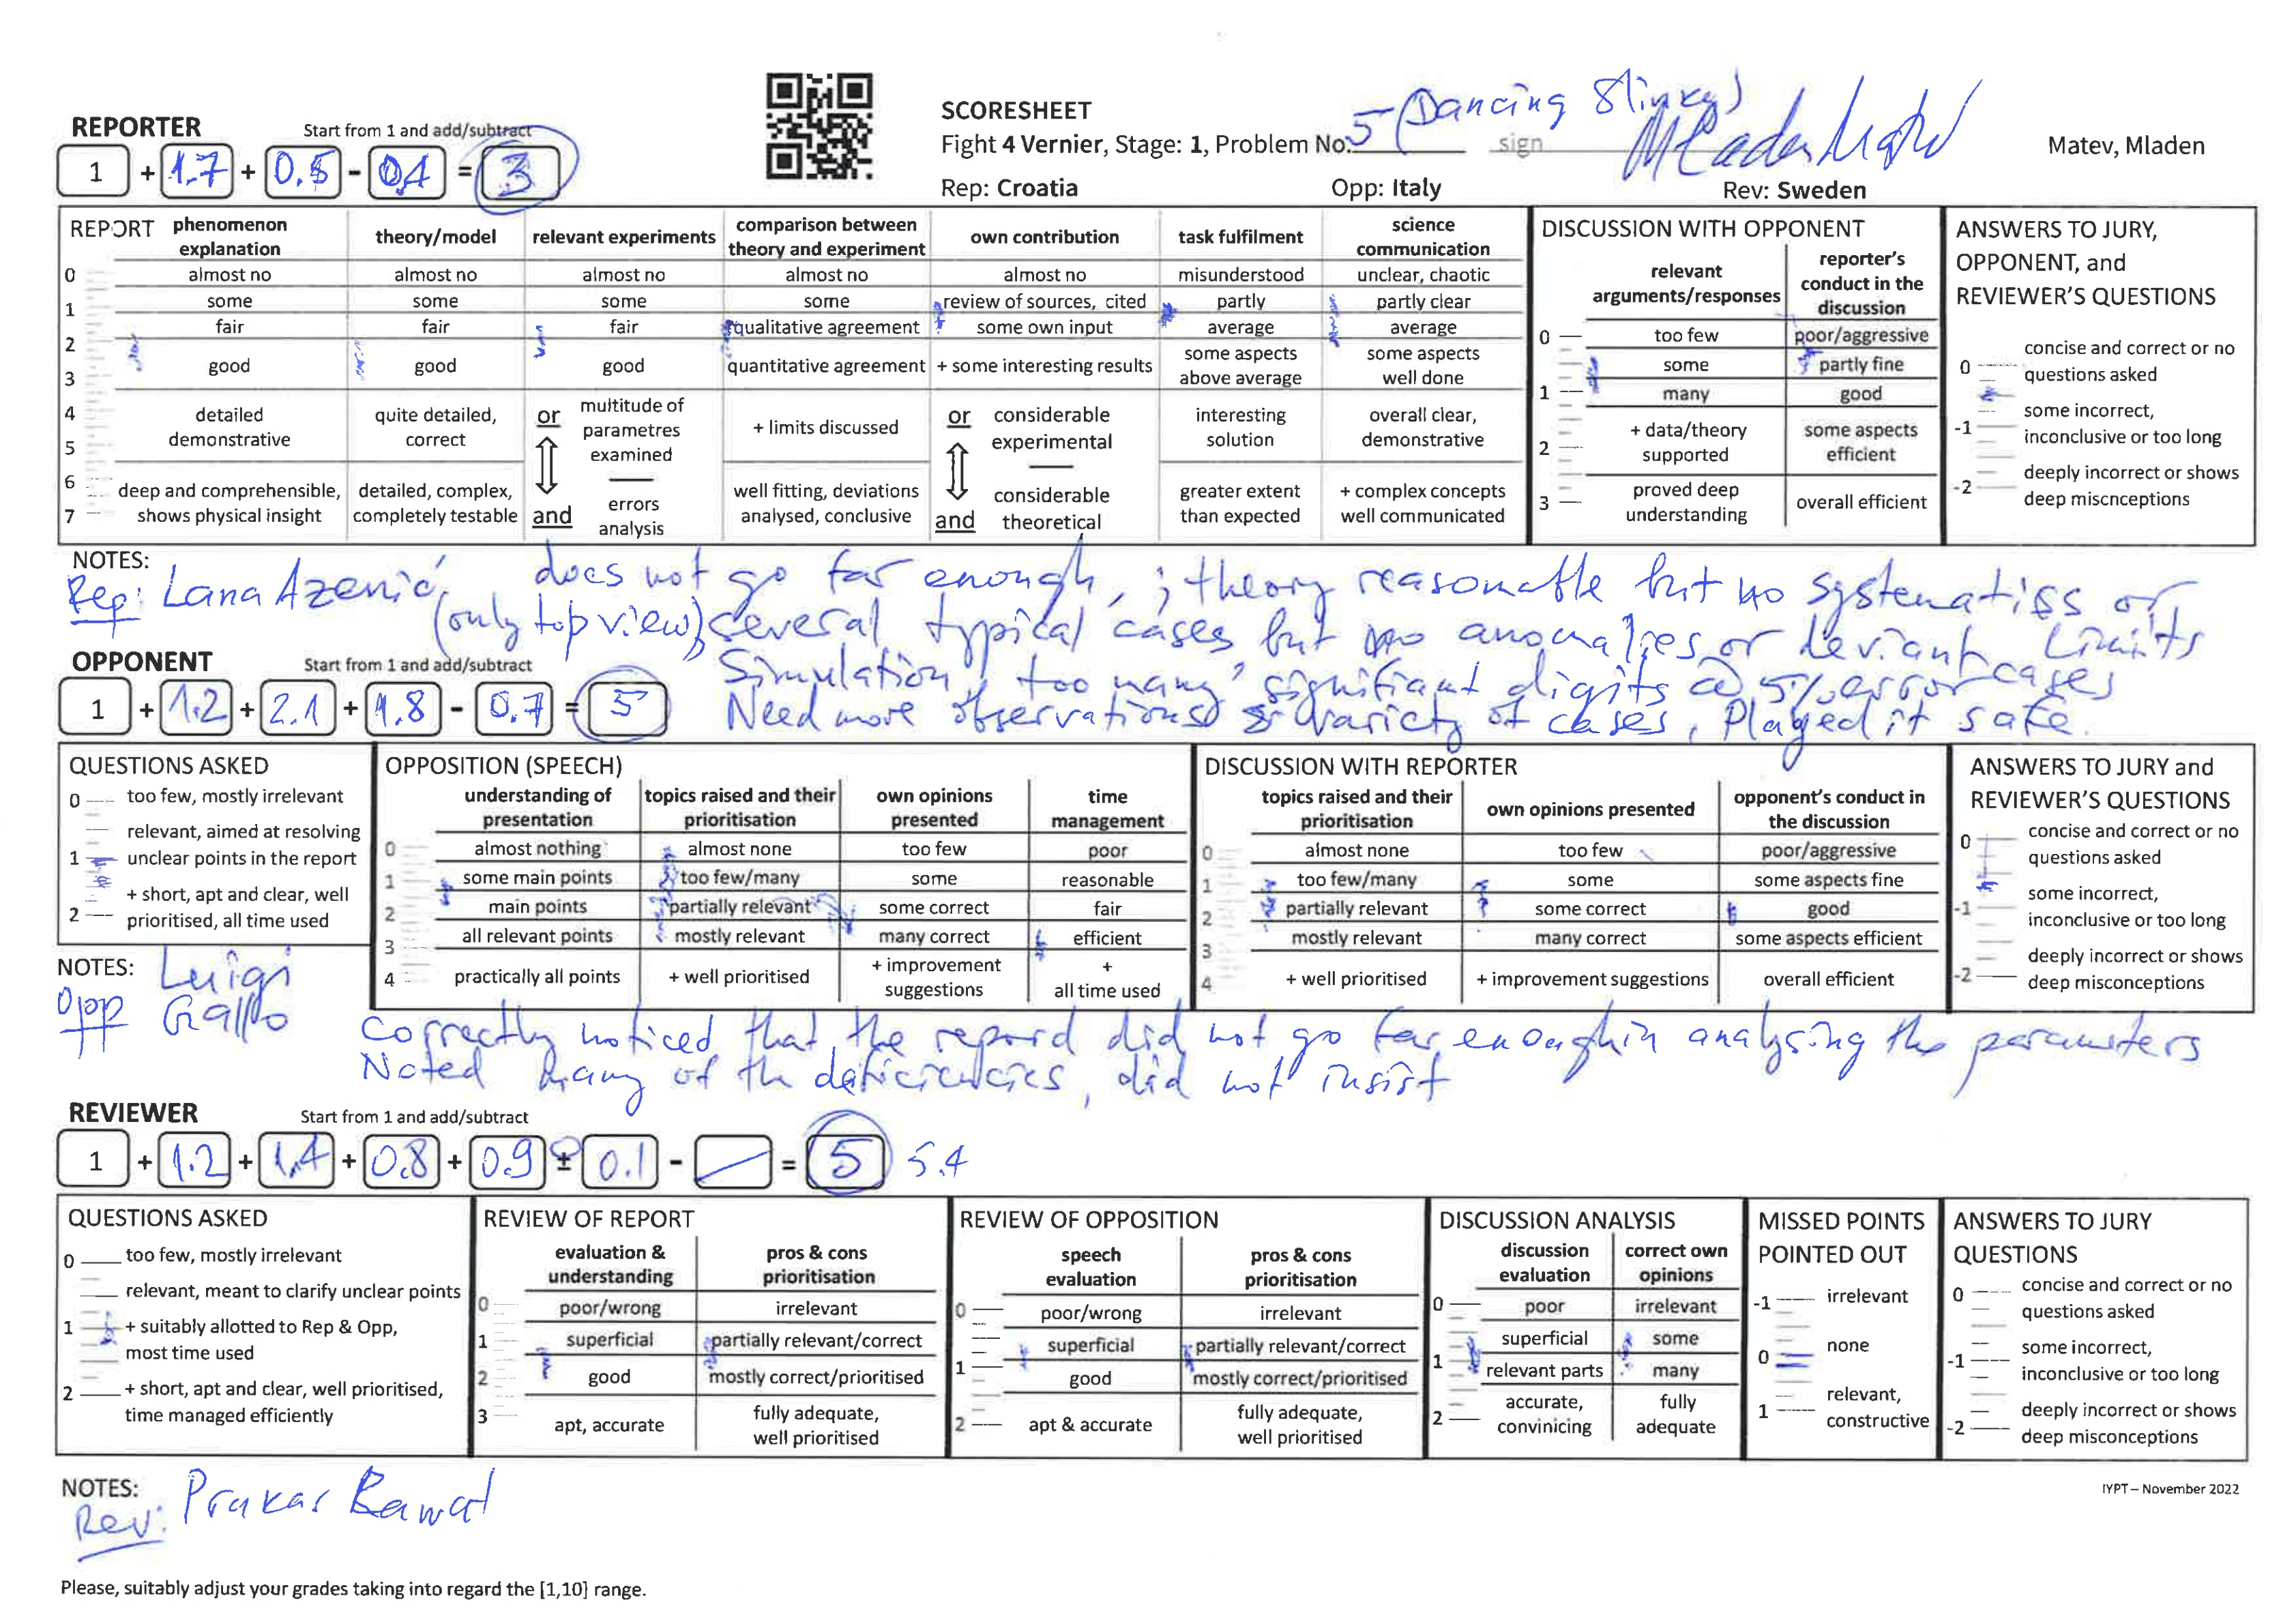 SCORESHEET
Fight 4 Vernier, Stage: 1, Problem No. 5 (Dancing Slinky)
sign
Matev, Mladen
Rep: Croatia Opp: Italy Rev: Sweden
REPORTER Start from 1 and add/subtract
1 + 1.7 + 0.5 - 0.4 = 3
REPORT
phenomenon explanation | theory/model | relevant experiments | comparison between theory and experiment | own contribution | task fulfilment | science communication
0 almost no | almost no | almost no | almost no | almost no | misunderstood | unclear, chaotic
1 some | some | some | some | review of sources, cited | partly | partly clear
fair | fair | fair | qualitative agreement | some own input | average | average
2
3 good | good | good | quantitative agreement | + some interesting results | some aspects above average | some aspects well done
4 5 detailed demonstrative | quite detailed, correct | or multitude of parametres examined | + limits discussed | or considerable experimental | interesting solution | overall clear, demonstrative
6 7 deep and comprehensible, shows physical insight | detailed, complex, completely testable | and errors analysis | well fitting, deviations analysed, conclusive | and considerable theoretical | greater extent than expected | + complex concepts well communicated
DISCUSSION WITH OPPONENT
relevant arguments/responses | reporter's conduct in the discussion
0 too few | poor/aggressive
some | partly fine
1 many | good
2 + data/theory supported | some aspects efficient
3 proved deep understanding | overall efficient
ANSWERS TO JURY, OPPONENT, and REVIEWER'S QUESTIONS
0 concise and correct or no questions asked
-1 some incorrect, inconclusive or too long
-2 deeply incorrect or shows deep miscnceptions
NOTES:
Rep: Lana Azenić does not go far enough, ; theory reasonable but no systematiss or
(only top view), several typical cases but no anomalies or deviant Limits
Simulation, too many significant digits @ 5% error cases
Need more observations & variety of cases, Played it safe.
OPPONENT Start from 1 and add/subtract
1 + 1.2 + 2.1 + 1.8 - 0.7 = 5
QUESTIONS ASKED
0 too few, mostly irrelevant
relevant, aimed at resolving
1 unclear points in the report
+ short, apt and clear, well
2 prioritised, all time used
OPPOSITION (SPEECH)
understanding of presentation | topics raised and their prioritisation | own opinions presented | time management
0 almost nothing | almost none | too few | poor
1 some main points | too few/many | some | reasonable
2 main points | partially relevant | some correct | fair
3 all relevant points | mostly relevant | many correct | efficient
4 practically all points | + well prioritised | + improvement suggestions | + all time used
DISCUSSION WITH REPORTER
topics raised and their prioritisation | own opinions presented | opponent's conduct in the discussion
0 almost none | too few | poor/aggressive
1 too few/many | some | some aspects fine
2 partially relevant | some correct | good
3 mostly relevant | many correct | some aspects efficient
4 + well prioritised | + improvement suggestions | overall efficient
ANSWERS TO JURY and REVIEWER'S QUESTIONS
0 concise and correct or no questions asked
-1 some incorrect, inconclusive or too long
-2 deeply incorrect or shows deep misconceptions
NOTES: Luigi
Opp Gallo
Correctly noticed that the repord did not go far enough in analysing the parameters
Noted many of the deficiencies, did not insist
REVIEWER Start from 1 and add/subtract
1 + 1.2 + 1.4 + 0.8 + 0.9 ± 0.1 - = 5 5.4
QUESTIONS ASKED
0 too few, mostly irrelevant
relevant, meant to clarify unclear points
1 + suitably allotted to Rep & Opp, most time used
2 + short, apt and clear, well prioritised, time managed efficiently
REVIEW OF REPORT
evaluation & understanding | pros & cons prioritisation
0 poor/wrong | irrelevant
1 superficial | partially relevant/correct
2 good | mostly correct/prioritised
3 apt, accurate | fully adequate, well prioritised
REVIEW OF OPPOSITION
speech evaluation | pros & cons prioritisation
0 poor/wrong | irrelevant
superficial | partially relevant/correct
1 good | mostly correct/prioritised
2 apt & accurate | fully adequate, well prioritised
DISCUSSION ANALYSIS
discussion evaluation | correct own opinions
0 poor | irrelevant
superficial | some
1 relevant parts | many
2 accurate, convinicing | fully adequate
MISSED POINTS POINTED OUT
-1 irrelevant
0 none
1 relevant, constructive
ANSWERS TO JURY QUESTIONS
0 concise and correct or no questions asked
-1 some incorrect, inconclusive or too long
-2 deeply incorrect or shows deep misconceptions
NOTES:
Rev: Prakar Rawal
IYPT – November 2022
Please, suitably adjust your grades taking into regard the [1,10] range.